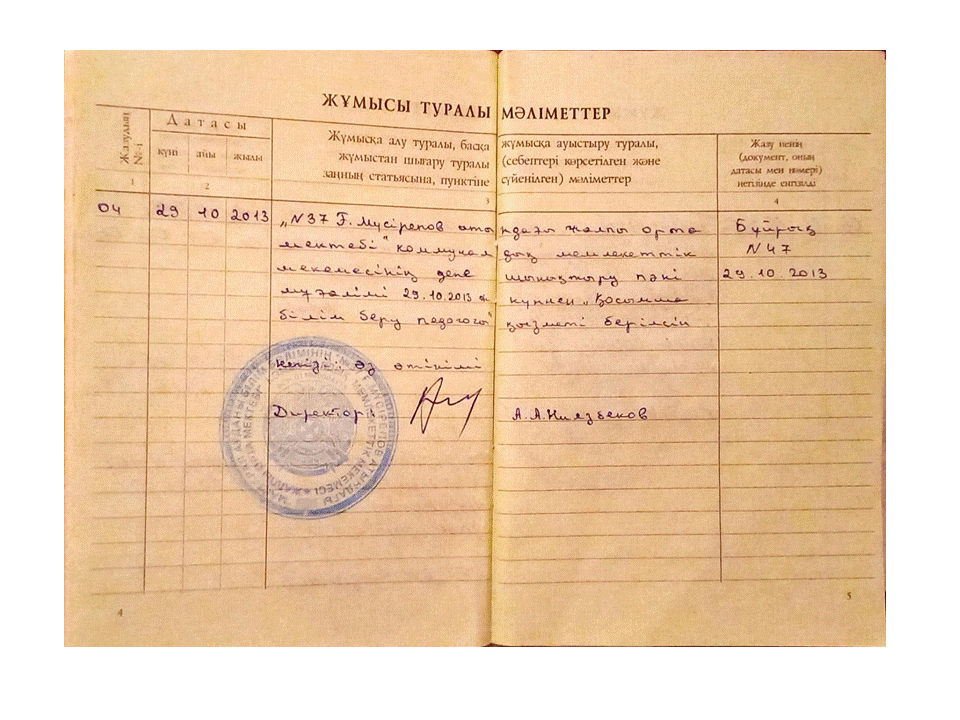 ЖҰМЫСЫ ТУРАЛЫ МӘЛІМЕТТЕР
Жазудың №-і
Датасы
күні айы жылы
Жұмысқа алу туралы, басқа жұмысқа ауыстыру туралы,
жұмыстан шығару туралы (себептері көрсетілген және
заңның статьясына, пунктіне сүйенілген) мәліметтер
Жазу ненің
(документ, оның
датасы мен нөмері)
негізінде енгізілді
1 2 3 4
04 29 10 2013 „N37 Ғ. Мүсірепов атындағы жалпы орта Бұйрық
мектебі" коммуналдық мемлекеттік N47
мекемесінің дене шынықтыру пәні 29.10.2013
мұғалімі 29.10.2013 күнінен „Қосымша
білім беру педагогы" қызметі берілсін
өз өтініші
Директоры А.А.Ниязбеков
4
5